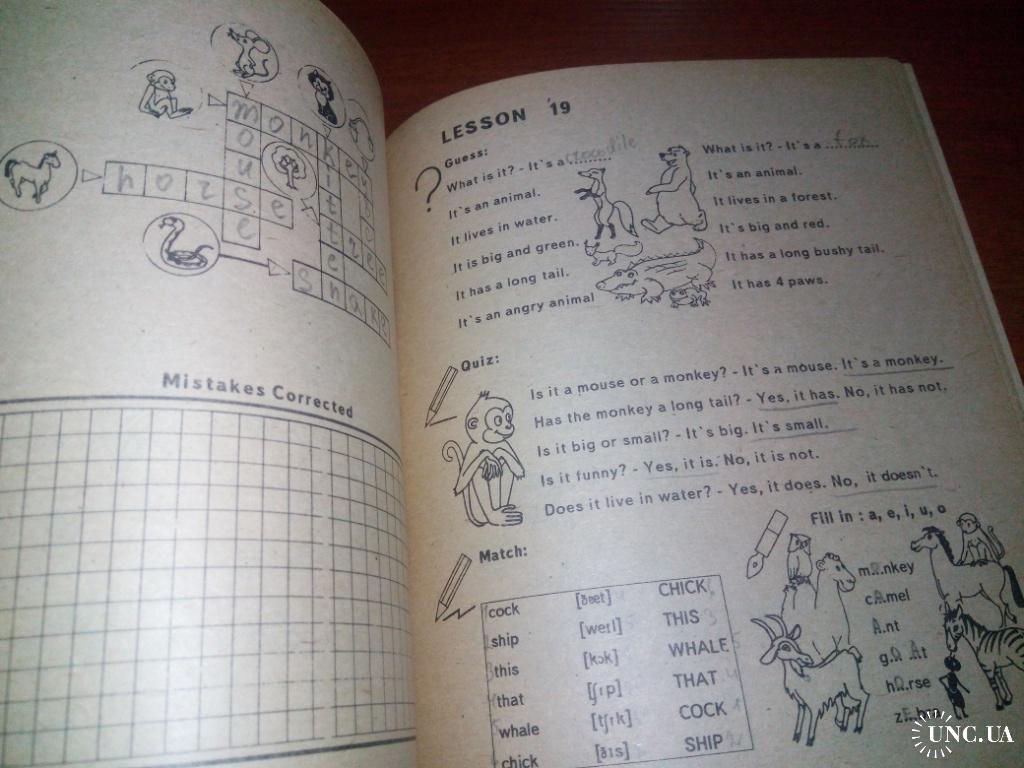 monkey
mouse
kitten
horse
tree
snake
Mistakes Corrected
LESSON 19
Guess:
What is it? - It`s a crocodile
It`s an animal.
It lives in water.
It is big and green.
It has a long tail.
It`s an angry animal
What is it? - It`s a fox
It`s an animal.
It lives in a forest.
It`s big and red.
It has a long bushy tail.
It has 4 paws.
Quiz:
Is it a mouse or a monkey? - It`s a mouse. It`s a monkey.
Has the monkey a long tail? - Yes, it has. No, it has not.
Is it big or small? - It`s big. It`s small.
Is it funny? - Yes, it is. No, it is not.
Does it live in water? - Yes, it does. No, it doesn`t.
Match:
cock [ðæt] CHICK
ship [weɪl] THIS
this [kɔk] WHALE
that [ʃɪp] THAT
whale [tʃɪk] COCK
chick [ðɪs] SHIP
Fill in : a, e, i, u, o
monkey
camel
ant
goat
horse
UNC.UA